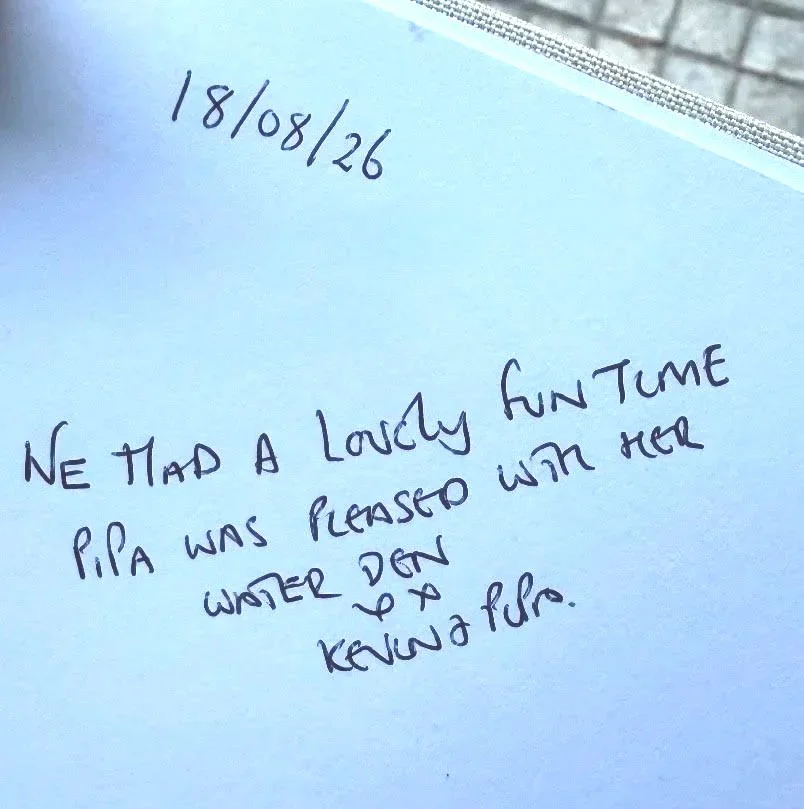 18/08/26
WE HAD A LOVELY FUN TIME
PIPA WAS PLEASED WITH HER
WATER DEN
x x
KEVIN & PIPA.